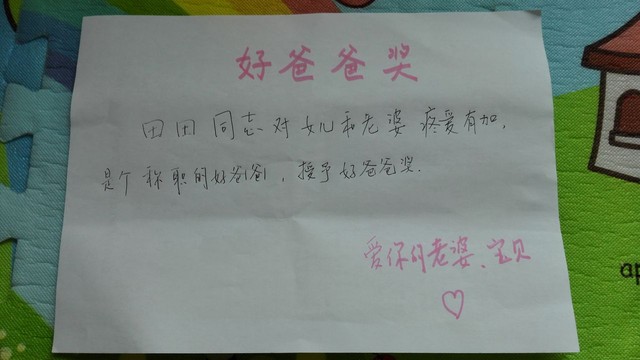 好爸爸奖
田田同志对女儿和老婆疼爱有加,
是个称职的好爸爸,授予好爸爸奖.
爱你的老婆、宝贝
♡
ap